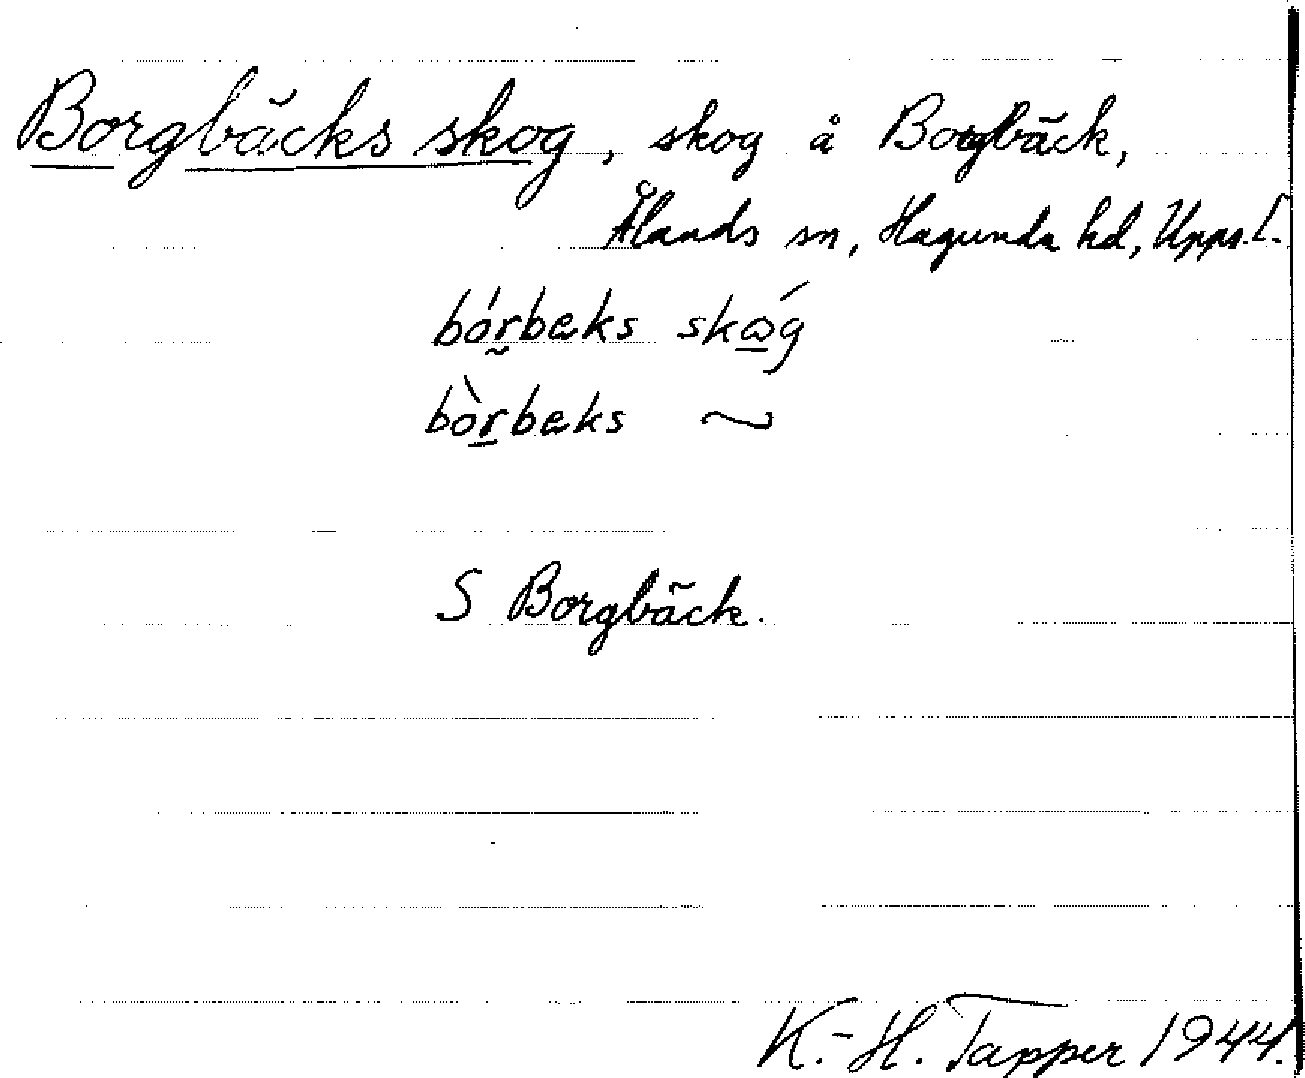 Borgbäcks skog, skog å Borgbäck,
Ålands sn, Hagunda hd, Upps. l.
bórbeks skωg
bòrbeks ~
S Borgbäck.
K.-H. Tapper 1944.